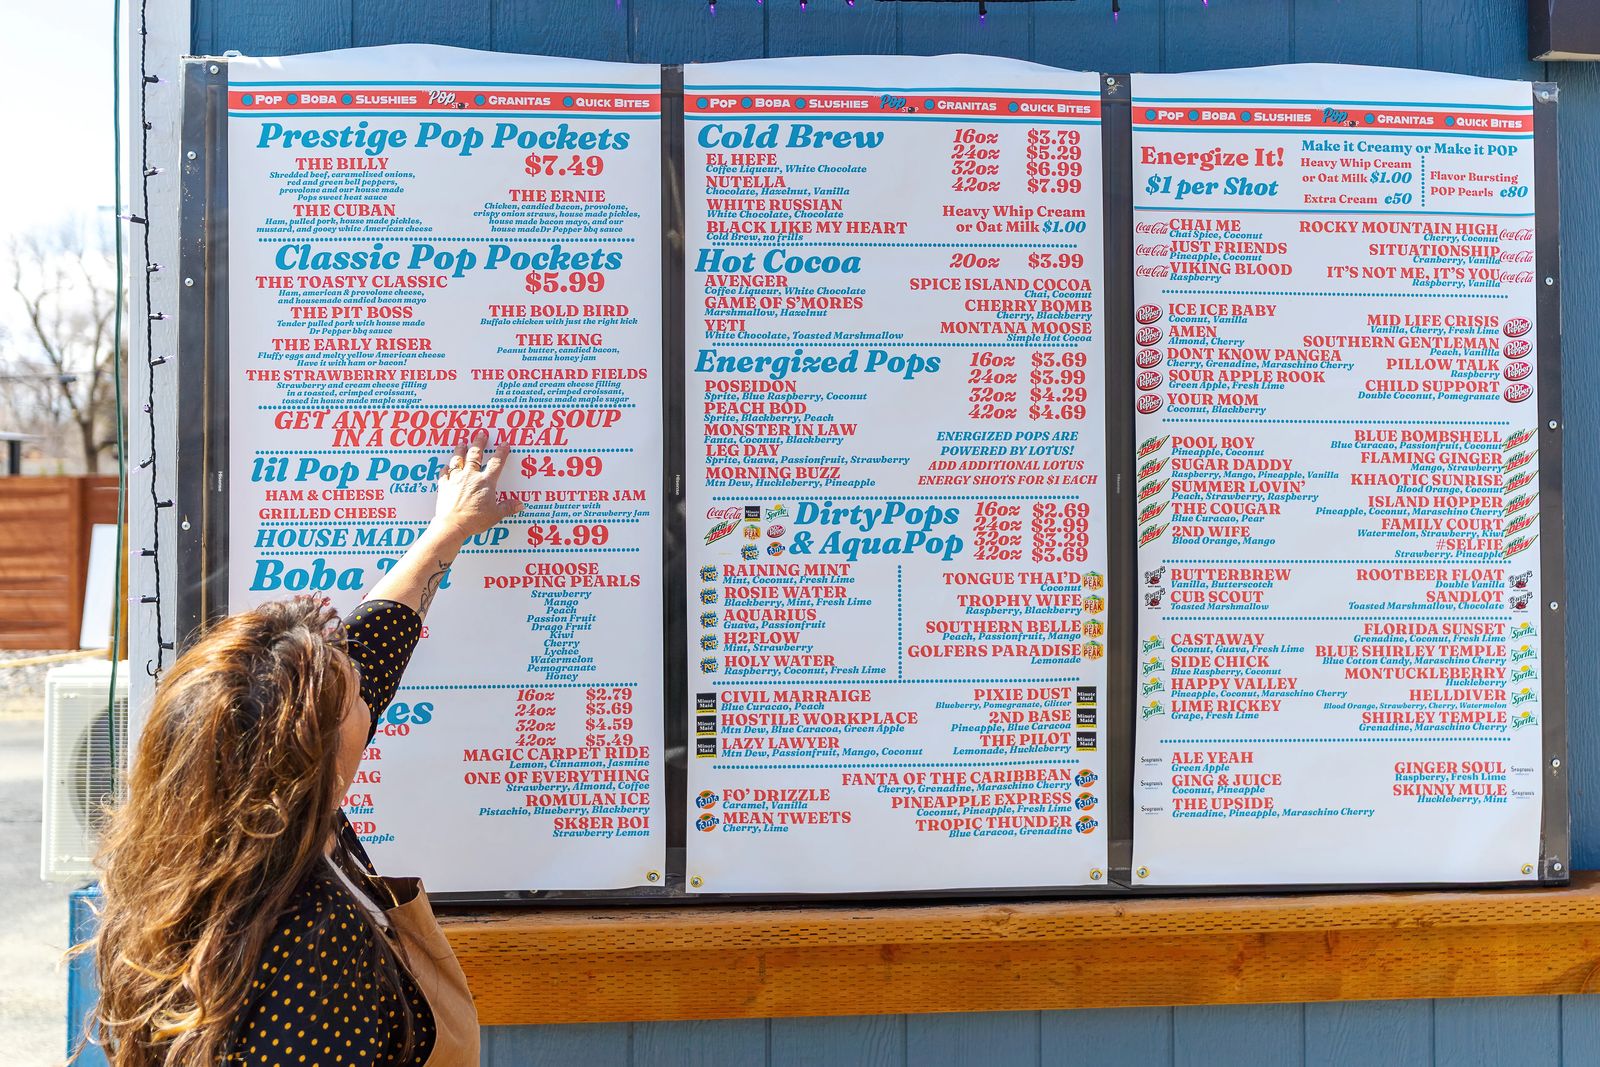 POP BOBA SLUSHIES Pop STOP GRANITAS QUICK BITES
Prestige Pop Pockets
$7.49
THE BILLY
Shredded beef, caramelized onions,
red and green bell peppers,
provolone and our house made
Pops sweet heat sauce
THE CUBAN
Ham, pulled pork, house made pickles,
mustard, and gooey white American cheese
THE ERNIE
Chicken, candied bacon, provolone,
crispy onion straws, house made pickles,
house made bacon mayo, and our
house madeDr Pepper bbq sauce
Classic Pop Pockets
$5.99
THE TOASTY CLASSIC
Ham, american & provolone cheese,
and housemade candied bacon mayo
THE PIT BOSS
Tender pulled pork with house made
Dr Pepper bbq sauce
THE BOLD BIRD
Buffalo chicken with just the right kick
THE EARLY RISER
Fluffy eggs and melty yellow American cheese
Have it with ham or bacon!
THE KING
Peanut butter, candied bacon,
banana honey jam
THE STRAWBERRY FIELDS
Strawberry and cream cheese filling
in a toasted, crimped croissant,
tossed in house made maple sugar
THE ORCHARD FIELDS
Apple and cream cheese filling
in a toasted, crimped croissant,
tossed in house made maple sugar
GET ANY POCKET OR SOUP
IN A COMBO MEAL
lil Pop Pock
$4.99
(Kid's M
HAM & CHEESE
GRILLED CHEESE
ANUT BUTTER JAM
Peanut butter with
Banana Jam, or Strawberry Jam
HOUSE MAD OUP $4.99
Boba
CHOOSE
POPPING PEARLS
Strawberry
Mango
Peach
Passion Fruit
Drago Fruit
Kiwi
Cherry
Lychee
Watermelon
Pemogranate
Honey
es
-GO
16oz $2.79
24oz $3.69
32oz $4.59
42oz $5.49
MAGIC CARPET RIDE
Lemon, Cinnamon, Jasmine
ONE OF EVERYTHING
Strawberry, Almond, Coffee
ROMULAN ICE
Pistachio, Blueberry, Blackberry
SK8ER BOI
Strawberry Lemon
POP BOBA SLUSHIES Pop STOP GRANITAS QUICK BITES
Cold Brew
16oz $3.79
24oz $5.29
32oz $6.99
42oz $7.99
EL HEFE
Coffee Liqueur, White Chocolate
NUTELLA
Chocolate, Hazelnut, Vanilla
WHITE RUSSIAN
White Chocolate, Chocolate
BLACK LIKE MY HEART
Cold Brew, no frills
Heavy Whip Cream
or Oat Milk $1.00
Hot Cocoa
20oz $3.99
AVENGER
Coffee Liqueur, White Chocolate
GAME OF S'MORES
Marshmallow, Hazelnut
YETI
White Chocolate, Toasted Marshmallow
SPICE ISLAND COCOA
Chai, Coconut
CHERRY BOMB
Cherry, Blackberry
MONTANA MOOSE
Simple Hot Cocoa
Energized Pops
16oz $3.69
24oz $3.99
32oz $4.29
42oz $4.69
POSEIDON
Sprite, Blue Raspberry, Coconut
PEACH BOD
Sprite, Blackberry, Peach
MONSTER IN LAW
Fanta, Coconut, Blackberry
LEG DAY
Sprite, Guava, Passionfruit, Strawberry
MORNING BUZZ
Mtn Dew, Huckleberry, Pineapple
ENERGIZED POPS ARE
POWERED BY LOTUS!
ADD ADDITIONAL LOTUS
ENERGY SHOTS FOR $1 EACH
DirtyPops
& AquaPop
16oz $2.69
24oz $2.99
32oz $3.29
42oz $3.69
RAINING MINT
Mint, Coconut, Fresh Lime
ROSIE WATER
Blackberry, Mint, Fresh Lime
AQUARIUS
Guava, Passionfruit
H2FLOW
Mint, Strawberry
HOLY WATER
Raspberry, Coconut, Fresh Lime
TONGUE THAI'D
Coconut
TROPHY WIFE
Raspberry, Blackberry
SOUTHERN BELLE
Peach, Passionfruit, Mango
GOLFERS PARADISE
Lemonade
CIVIL MARRAIGE
Blue Curacao, Peach
HOSTILE WORKPLACE
Mtn Dew, Blue Caracao, Green Apple
LAZY LAWYER
Mtn Dew, Passionfruit, Mango, Coconut
PIXIE DUST
Blueberry, Pomegranate, Glitter
2ND BASE
Pineapple, Blue Caracoa
THE PILOT
Lemonade, Huckleberry
FO' DRIZZLE
Caramel, Vanilla
MEAN TWEETS
Cherry, Lime
FANTA OF THE CARIBBEAN
Cherry, Grenadine, Maraschino Cherry
PINEAPPLE EXPRESS
Coconut, Pineapple, Fresh Lime
TROPIC THUNDER
Blue Caracoa, Grenadine
POP BOBA SLUSHIES Pop STOP GRANITAS QUICK BITES
Energize It!
$1 per Shot
Make it Creamy or Make it POP
Heavy Whip Cream
or Oat Milk $1.00
Extra Cream ¢50
Flavor Bursting
POP Pearls ¢80
CHAI ME
Chai Spice, Coconut
JUST FRIENDS
Pineapple, Coconut
VIKING BLOOD
Raspberry
ROCKY MOUNTAIN HIGH
Cherry, Coconut
SITUATIONSHIP
Cranberry, Vanilla
IT'S NOT ME, IT'S YOU
Raspberry, Vanilla
ICE ICE BABY
Coconut, Vanilla
AMEN
Almond, Cherry
DONT KNOW PANGEA
Cherry, Grenadine, Maraschino Cherry
SOUR APPLE ROOK
Green Apple, Fresh Lime
YOUR MOM
Coconut, Blackberry
MID LIFE CRISIS
Vanilla, Cherry, Fresh Lime
SOUTHERN GENTLEMAN
Peach, Vanilla
PILLOW TALK
Raspberry
CHILD SUPPORT
Double Coconut, Pomegranate
POOL BOY
Pineapple, Coconut
SUGAR DADDY
Raspberry, Mango, Pineapple, Vanilla
SUMMER LOVIN'
Peach, Strawberry, Raspberry
THE COUGAR
Blue Curacao, Pear
2ND WIFE
Blood Orange, Mango
BLUE BOMBSHELL
Blue Curacao, Passionfruit, Coconut
FLAMING GINGER
Mango, Strawberry
KHAOTIC SUNRISE
Blood Orange, Coconut
ISLAND HOPPER
Pineapple, Coconut, Maraschino Cherry
FAMILY COURT
Watermelon, Strawberry, Kiwi
#SELFIE
Strawberry, Pineapple
BUTTERBREW
Vanilla, Butterscotch
CUB SCOUT
Toasted Marshmallow
ROOTBEER FLOAT
Double Vanilla
SANDLOT
Toasted Marshmallow, Chocolate
CASTAWAY
Coconut, Guava, Fresh Lime
SIDE CHICK
Blue Raspberry, Coconut
HAPPY VALLEY
Pineapple, Coconut, Maraschino Cherry
LIME RICKEY
Grape, Fresh Lime
FLORIDA SUNSET
Grenadine, Coconut, Fresh Lime
BLUE SHIRLEY TEMPLE
Blue Cotton Candy, Maraschino Cherry
MONTUCKLEBERRY
Huckleberry
HELLDIVER
Blood Orange, Strawberry, Cherry, Watermelon
SHIRLEY TEMPLE
Grenadine, Maraschino Cherry
ALE YEAH
Green Apple
GING & JUICE
Coconut, Pineapple
THE UPSIDE
Grenadine, Pineapple, Maraschino Cherry
GINGER SOUL
Raspberry, Fresh Lime
SKINNY MULE
Huckleberry, Mint